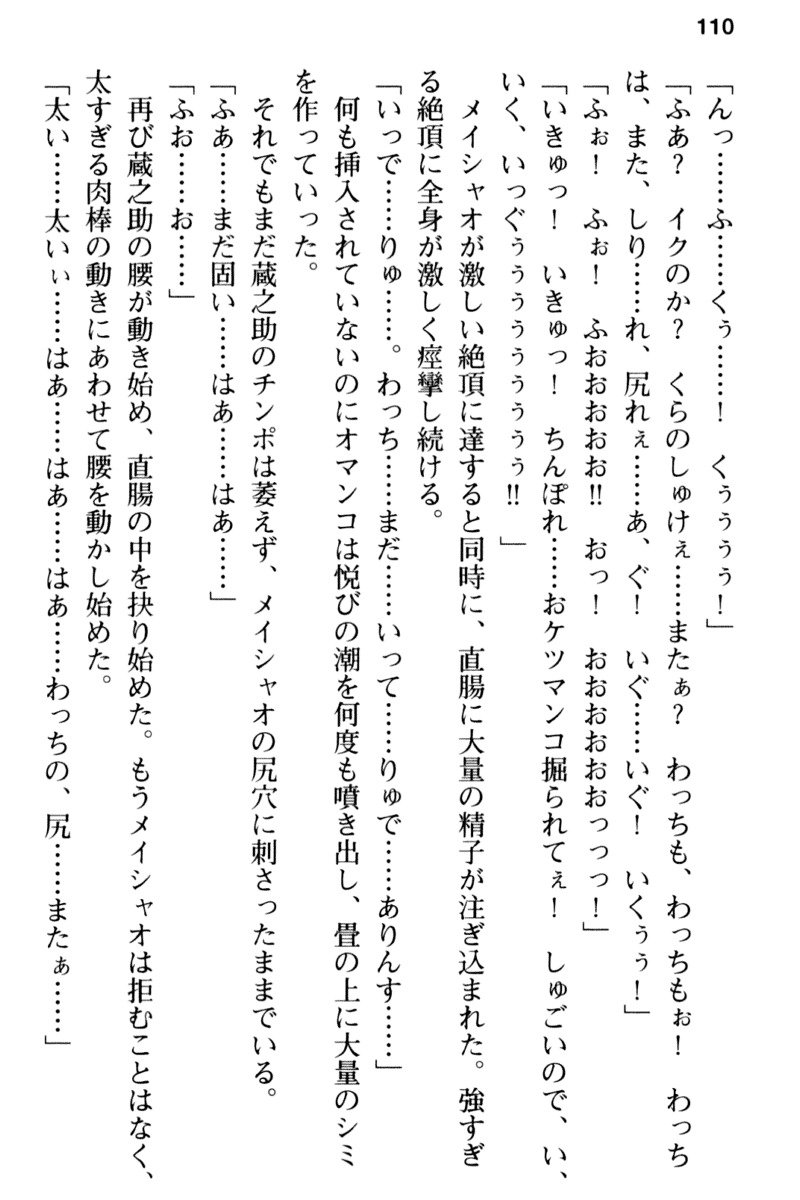 110
「んっ……ふ……くぅ……！　くぅぅぅぅ！」
「ふあ？　イクのか？　くらのしゅけぇ……またぁ？　わっちも、わっちもぉ！　わっち
は、また、しり……れ、尻れぇ……あ、ぐ！　いぐ……いぐ！　いくぅぅ！」
「ふぉ！　ふぉ！　ふおおおおお‼　おっ！　おおおおおおっっっ！」
「いきゅっ！　いきゅっ！　ちんぽれ……おケツマンコ掘られてぇ！　しゅごいので、い、
いく、いっぐぅぅぅぅぅぅぅぅ‼　」
メイシャオが激しい絶頂に達すると同時に、直腸に大量の精子が注ぎ込まれた。強すぎ
る絶頂に全身が激しく痙攣し続ける。
「いっで……りゅ……。わっち……まだ……いって……りゅで……ありんす……」
何も挿入されていないのにオマンコは悦びの潮を何度も噴き出し、畳の上に大量のシミ
を作っていった。
それでもまだ蔵之助のチンポは萎えず、メイシャオの尻穴に刺さったままでいる。
「ふぁ……まだ固い……はあ……はあ……」
「ふお……お……」
再び蔵之助の腰が動き始め、直腸の中を抉り始めた。もうメイシャオは拒むことはなく、
太すぎる肉棒の動きにあわせて腰を動かし始めた。
「太い……太いぃ……はあ……はあ……はあ……わっちの、尻……またぁ……」